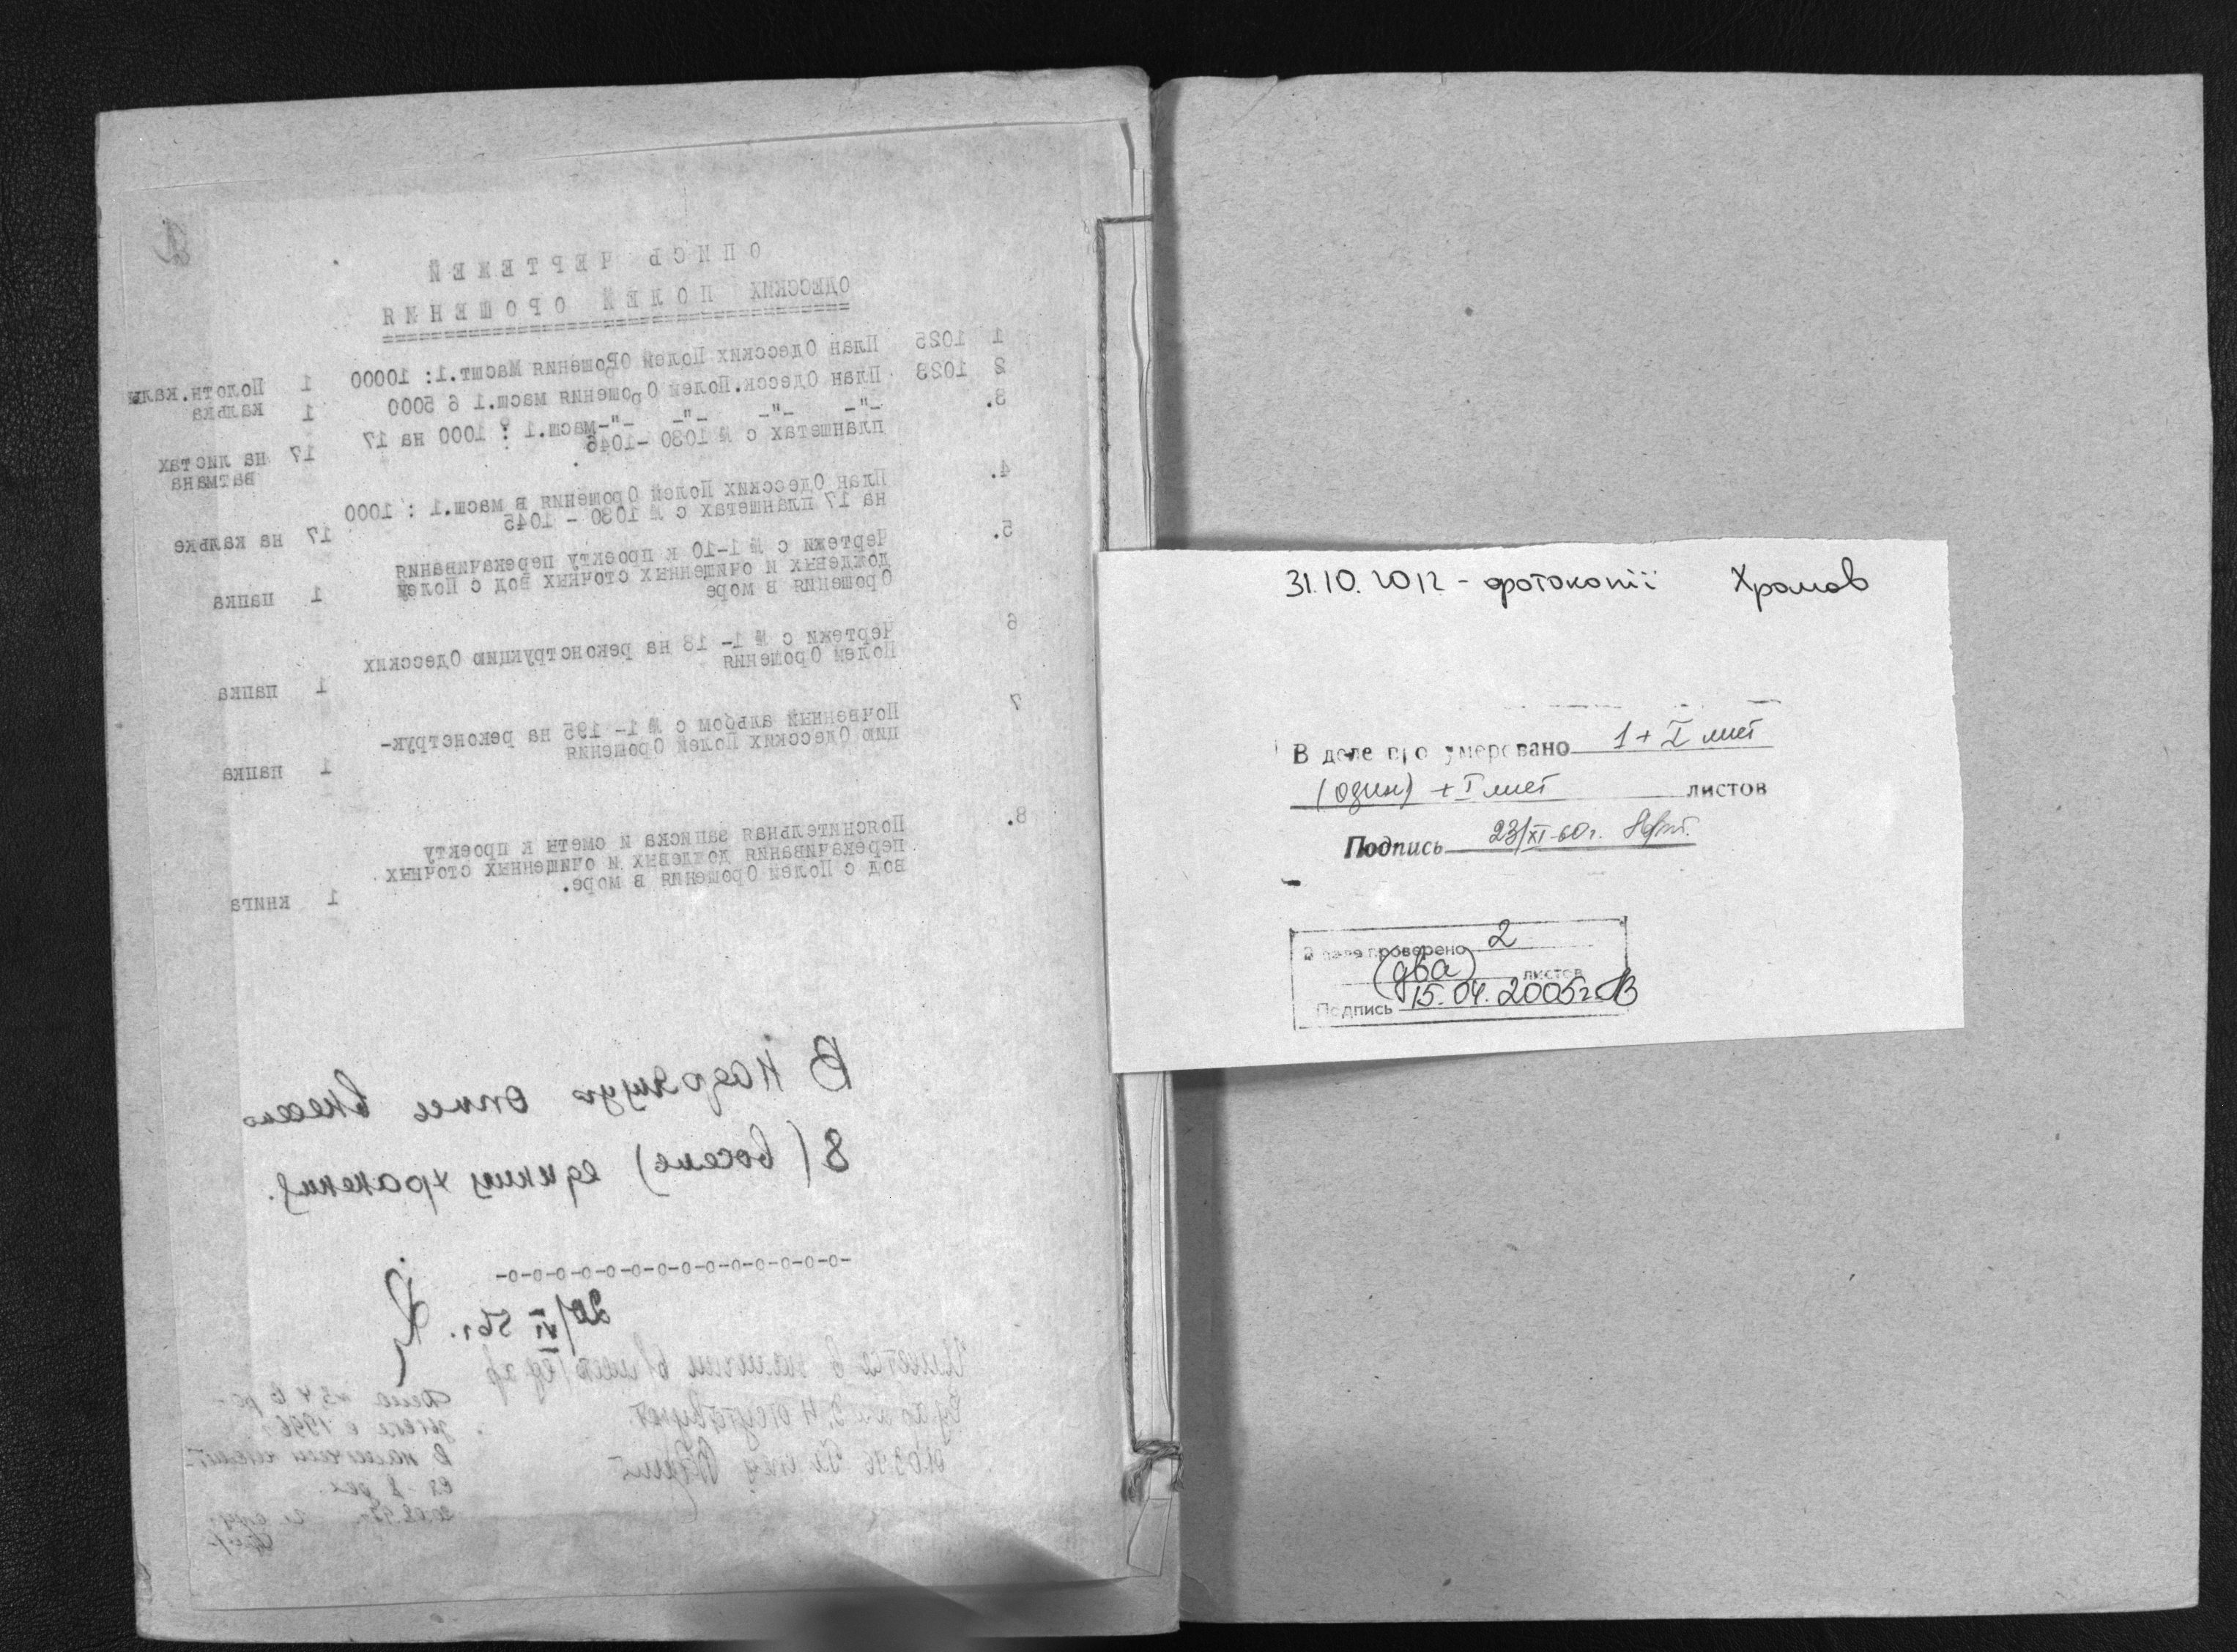 ОПИСЬ ЧЕРТЕЖЕЙ
ОДЕССКИХ ПОЛЕЙ ОРОШЕНИЯ
1 1025 План Одесских Полей Орошения Масшт.1: 10000 1 Полотн.каль
2 1028 План Одесск.Полей Орошения масш.1 6 5000 1 калька
3. -"- -"- -"- -"-масш.1 : 1000 на 17
планшетах с № 1030 -1046 17 на листах
ватмана
4. План Одесских Полей Орошения в масш.1 : 1000
на 17 планшетах с № 1030 - 1045 17 на кальке
5. Чертежи с № 1-10 к проекту перекачивания
дождевых и очищенных сточных вод с Полей
Орошения в море 1 папка
6 Чертежи с № 1- 18 на реконструкцию Одесских
Полей Орошения
1 папка
7 Почвенный альбом с № 1- 195 на реконструк-
цию Одесских Полей Орошения
1 папка
8. Пояснительная записка и сметы к проекту
перекачивания дождевых и очищенных сточных
вод с Полей Орошения в море.
1 книга
В настоящую опись внесено
8 (восемь) единиц хранения.
-о-о-о-о-о-о-о-о-о-о-о-о-о-о-
20/VI 56г.
Имеется в наличии
отсутствует
с 1996
В наличии
31.10.2012 - фотокопії Храмов
В деле пронумеровано 1 + I лист
(один) + I лист листов
Подпись 23/XI-60г.
В деле проверено 2
(два) листов
Подпись 15.04.2005г.